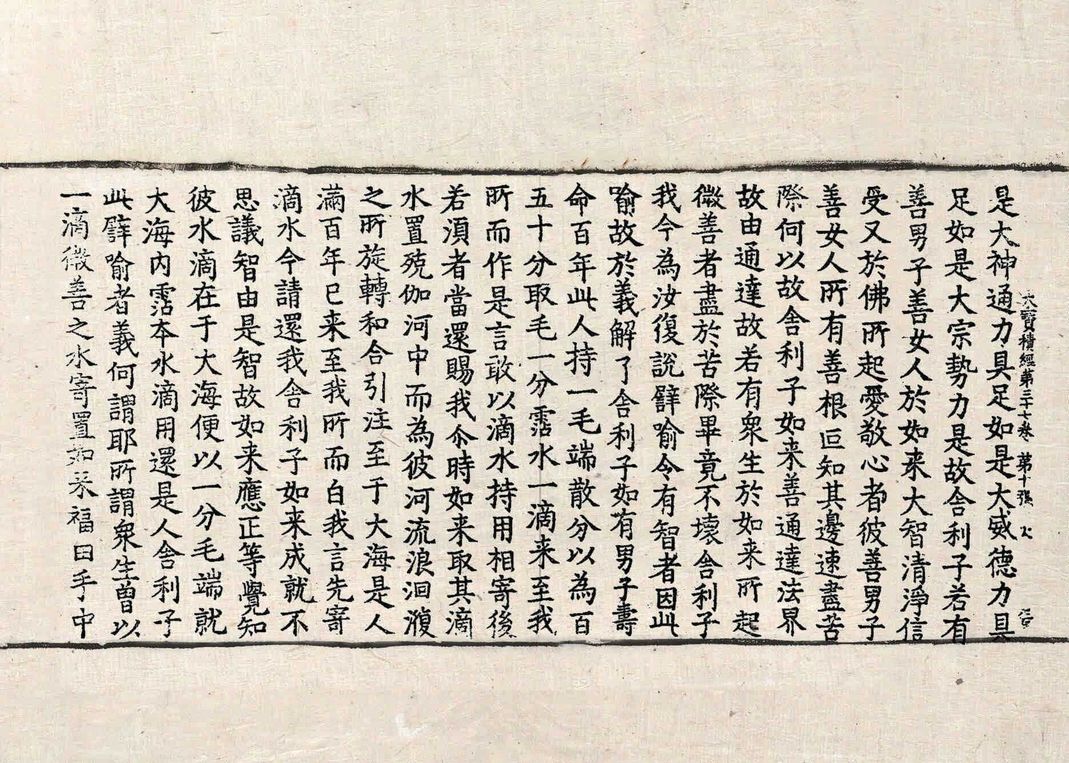 大寶積經第三十七卷 第十張 火
是大神通力具足如是大威德力具
足如是大宗勢力是故舍利子若有
善男子善女人於如来大智清淨信
受又於佛所起愛敬心者彼善男子
善女人所有善根叵知其邊速盡苦
際何以故舍利子如来善通達法界
故由通達故若有衆生於如来所起
微善者盡於苦際畢竟不壞舍利子
我今為汝復說譬喻令有智者因此
喻故於義解了舍利子如有男子壽
命百年此人持一毛端散分以為百
五十分取毛一分霑水一滴来至我
所而作是言敢以滴水持用相寄後
若湏者當還賜我尒時如来取其滴
水置殑伽河中而為彼河流浪洄澓
之所旋轉和合引注至于大海是人
滿百年已来至我所而白我言先寄
滴水今請還我舍利子如来成就不
思議智由是智故如来應正等覺知
彼水滴在于大海便以一分毛端就
大海內霑本水滴用還是人舍利子
此譬喻者義何謂耶所謂衆生曽以
一滴微善之水寄置如来福田手中